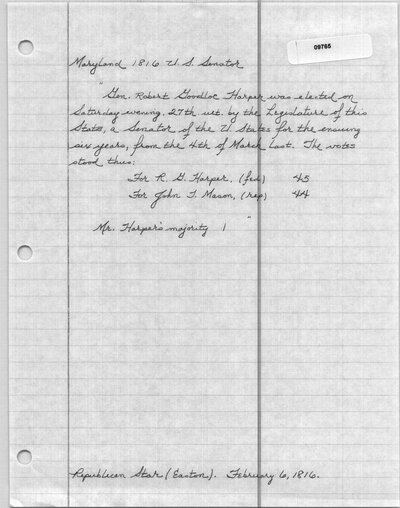 09765
Maryland 1816 U.S. Senator
"Gen. Robert Goodloe Harper was elected on
Saturday evening, 27th ult. by the Legislature of this
State, a Senator of the U States for the ensuing
six years, from the 4th of March last. The votes
stood thus:
For R. G. Harper, (fed) 45
For John T. Mason, (rep) 44
Mr. Harper's majority 1"
Republican Star (Easton). February 6, 1816.